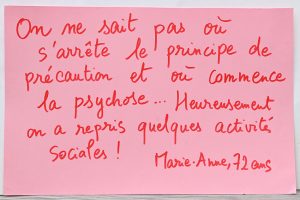 On ne sait pas où
s'arrête le principe de
précaution et où commence
la psychose... Heureusement
on a repris quelques activités
sociales !
Marie-Anne, 72 ans